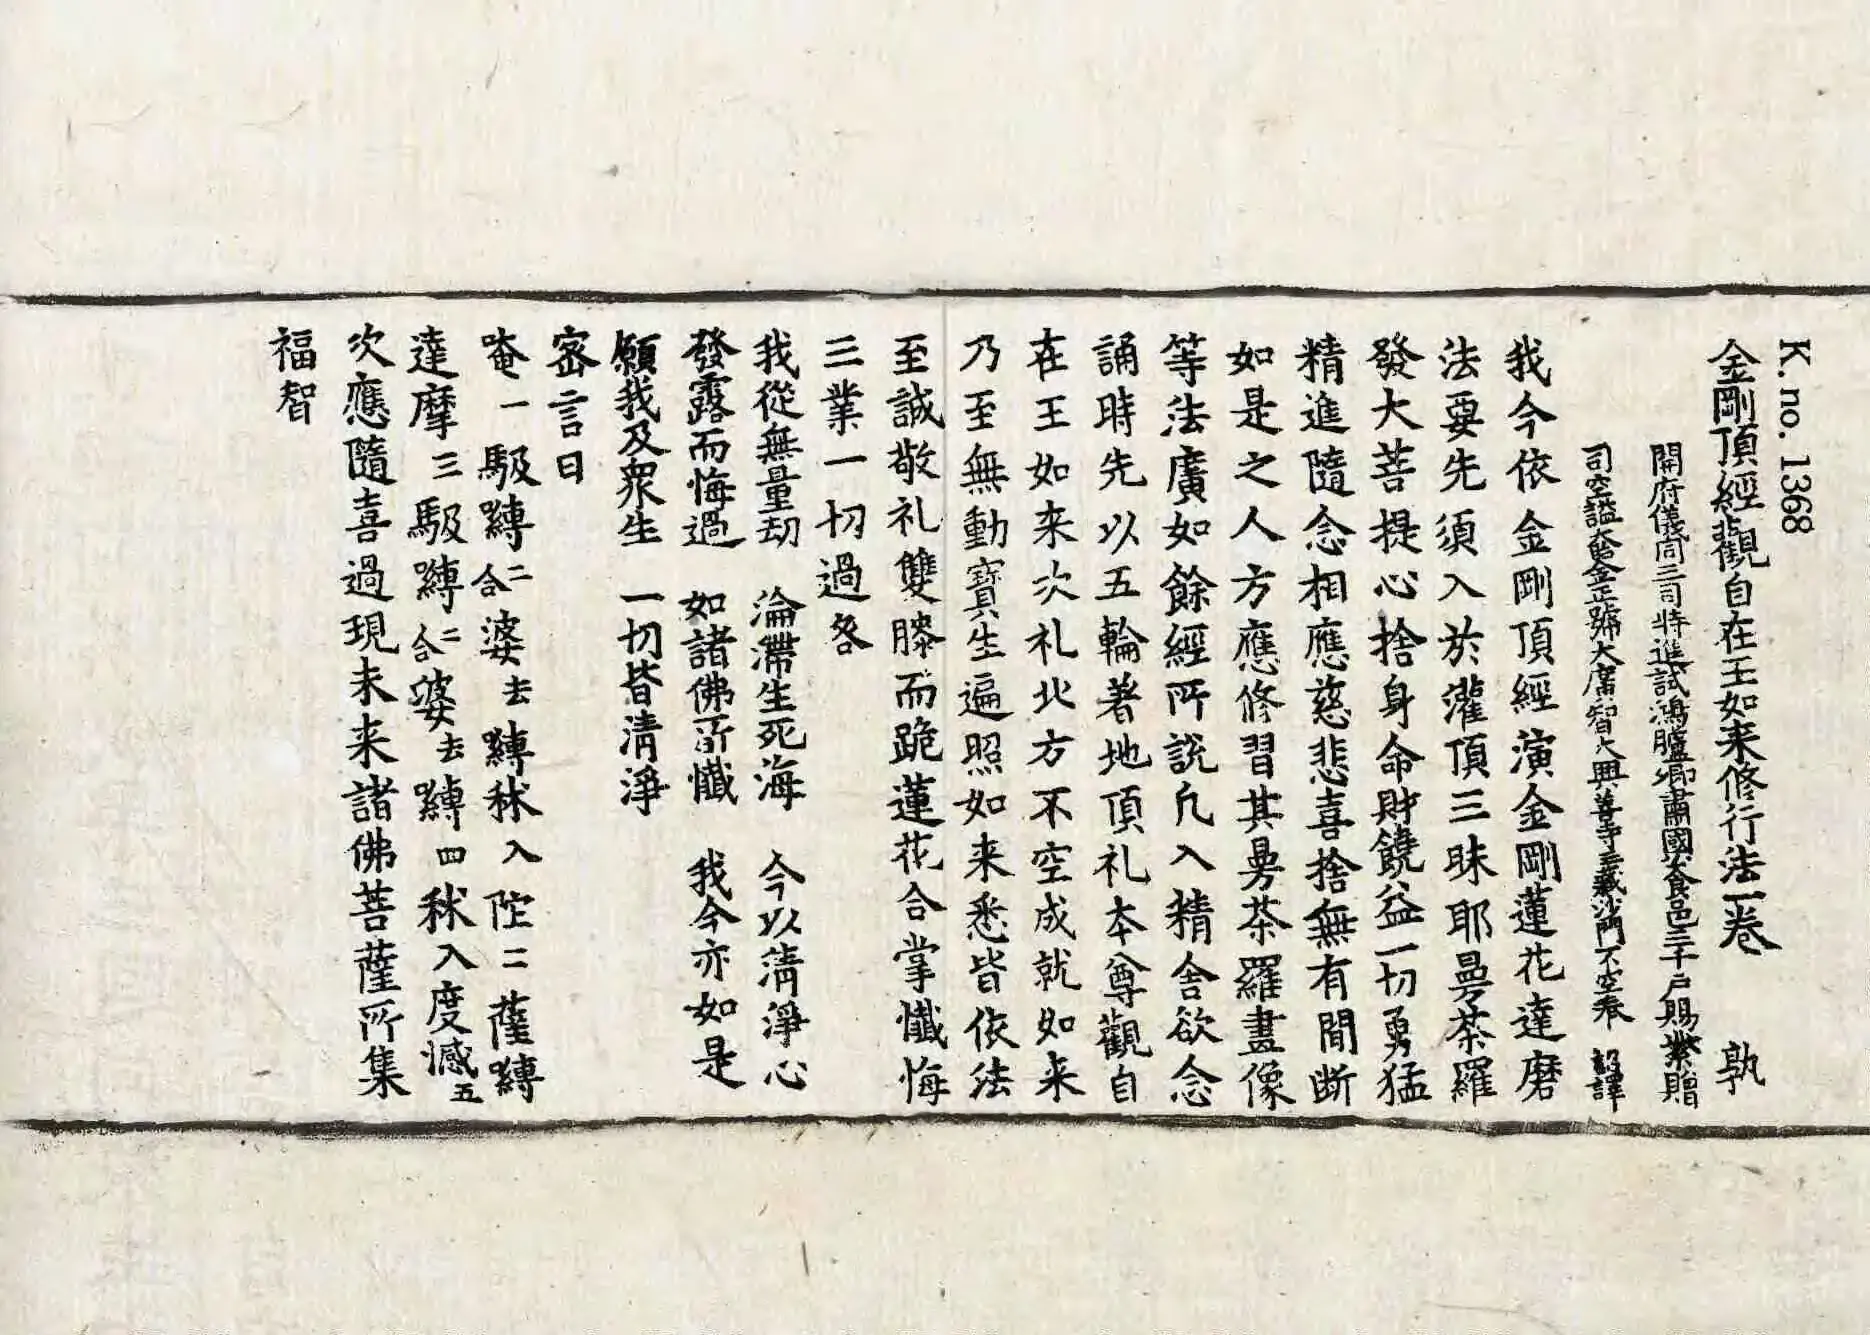 K.no.1368
金剛頂經觀自在王如来修行法一卷 孰
開府儀同三司特進試鴻臚卿肅國公食邑三千戶賜紫贈
司空謚大鑒正號大廣智大興善寺三藏沙門不空奉 詔譯
我今依金剛頂經演金剛蓮花達磨
法要先須入於灌頂三昧耶曼荼羅
發大菩提心捨身命財饒益一切勇猛
精進隨念相應慈悲喜捨無有間断
如是之人方應修習其曼荼羅畫像
等法廣如餘經所説凢入精舍欲念
誦時先以五輪著地頂礼本尊觀自
在王如来次礼北方不空成就如来
乃至無動寶生遍照如来悉皆依法
至誠敬礼雙膝而跪蓮花合掌懺悔
三業一切過咎
我從無量劫 淪滯生死海 今以清淨心
發露而悔過 如諸佛所懺 我今亦如是
願我及衆生 一切皆清淨
密言曰
唵一馺嚩二合婆去嚩秫入陀二薩嚩
達摩三馺嚩二合婆去嚩四秫入度憾五
次應隨喜過現未来諸佛菩薩所集
福智